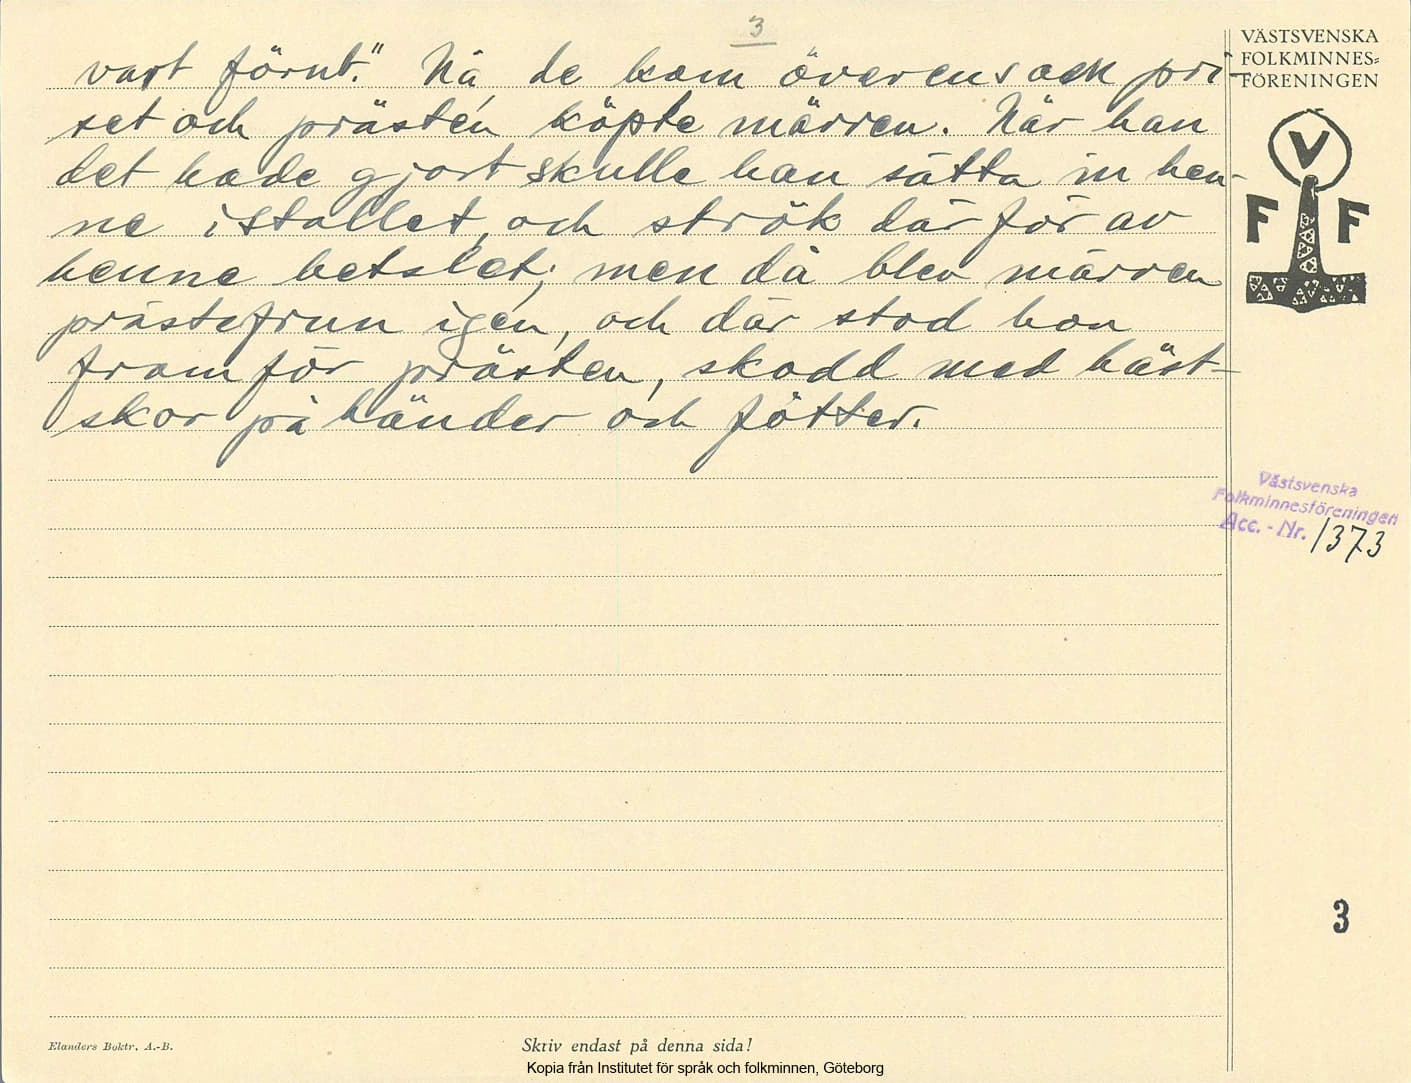 3
vart förut." Nå, de kom överens om pri-
set och prästen köpte märren. När han
det hade gjort skulle han sätta in hen-
ne i stallet, och strök därför av
henne betslet; men då blev märren
prästefrun igen, och där stod hon
framför prästen, skodd med häst-
skor på händer och fötter.
VÄSTSVENSKA
FOLKMINNES-
FÖRENINGEN
V
F F
Västsvenska
Folkminnesföreningen
Acc. - Nr. 1373
3
Elanders Boktr. A.-B.
Skriv endast på denna sida!
Kopia från Institutet för språk och folkminnen, Göteborg